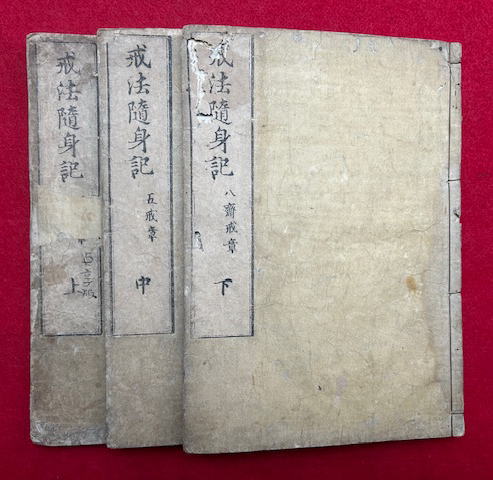 戒法隨身記
八齋戒章
下
戒法隨身記
五戒章
中
戒法隨身記
上